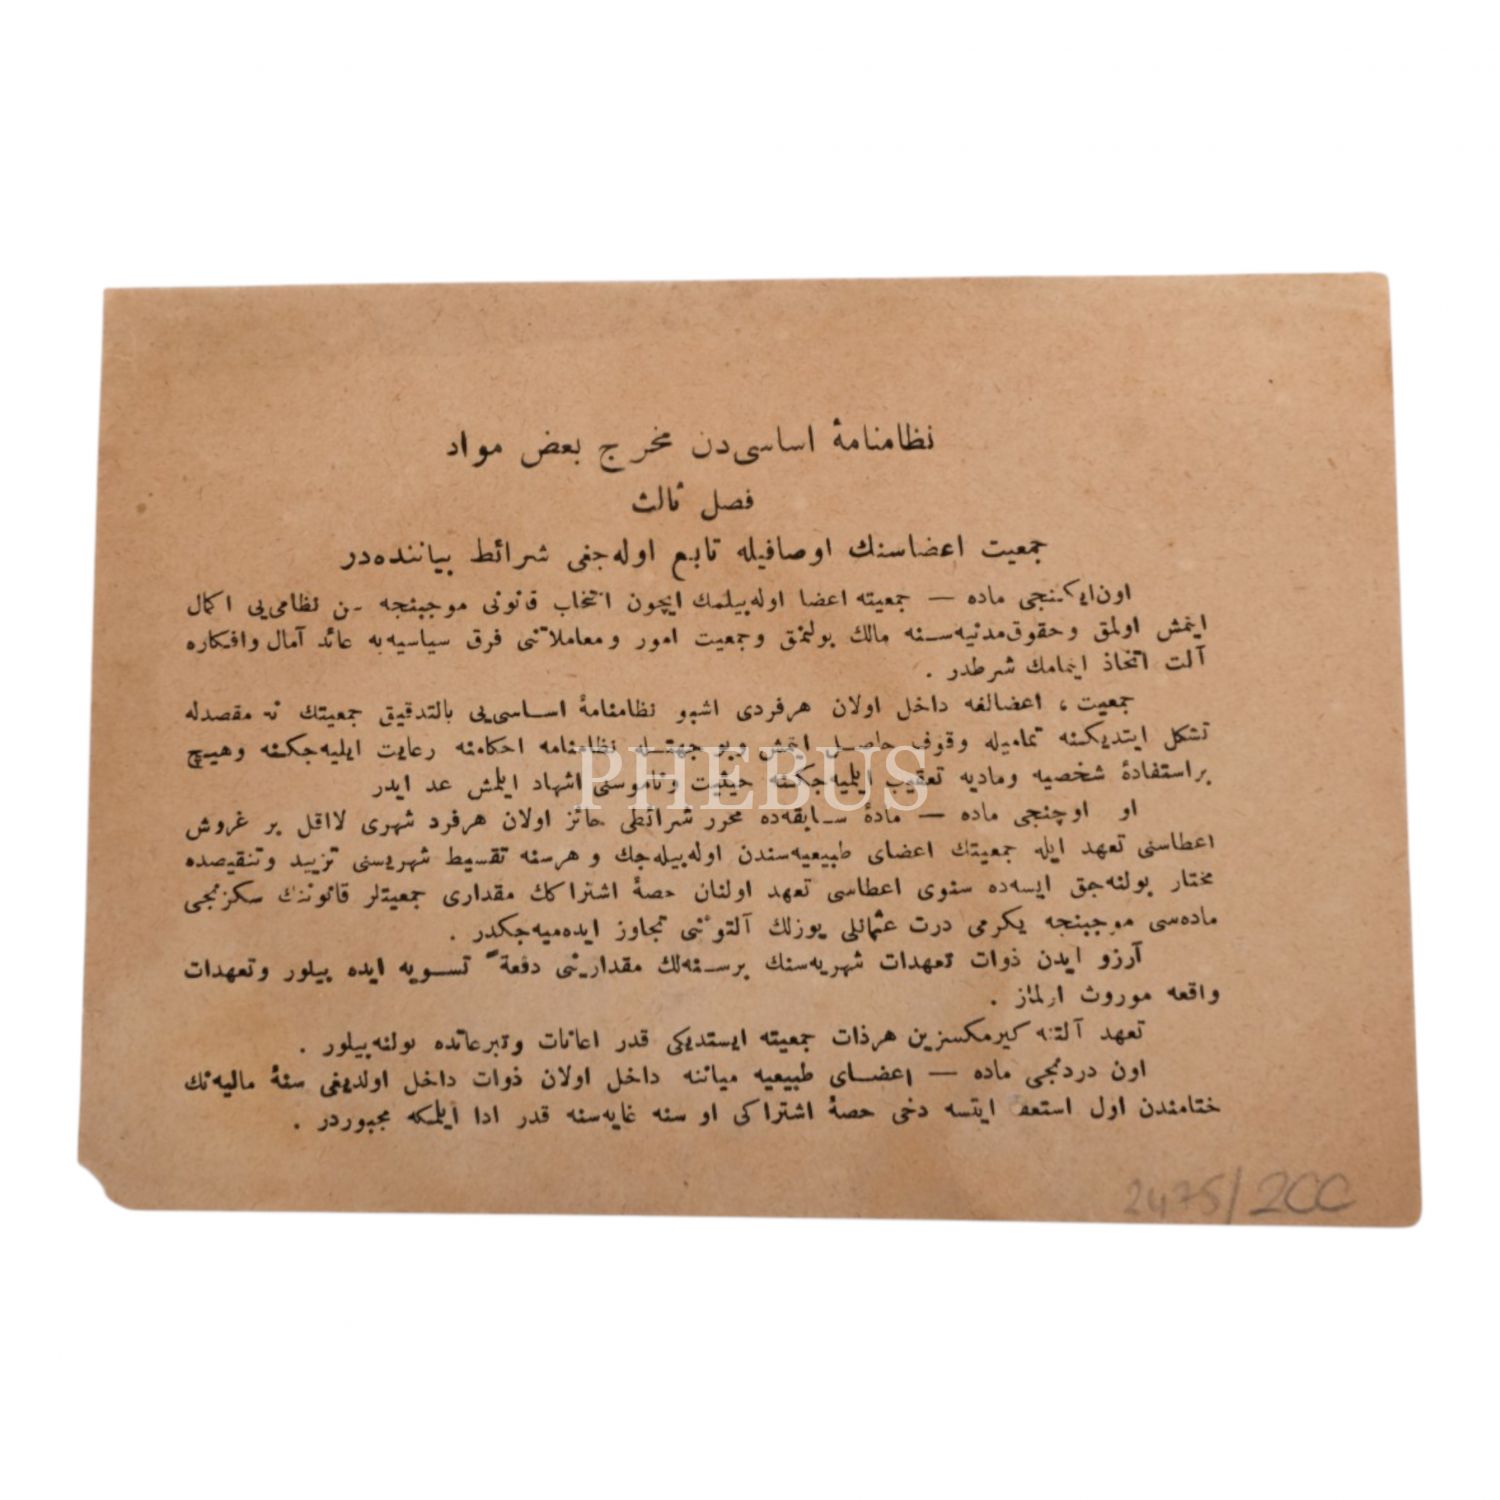 نظامنامهٔ اساسی‌دن مخرج بعض مواد
فصل ثالث
جمعیت اعضاسنك اوصافیله تابع اوله‌جغی شرائط بیاننده‌در
اون‌ایكنجی ماده — جمعیته اعضا اوله‌بیلمك ایچون انتخاب قانونی موجبنجه سن نظامی‌یی اكمال
ایتمش اولمق وحقوق‌مدنیه‌سنه مالك بولنمق وجمعیت امور ومعاملاتنی فرق سیاسیه‌یه عائد آمال وافكاره
آلت اتخاذ ایتمامك شرطدر .
جمعیت ، اعضالغه داخل اولان هرفردی اشبو نظامنامهٔ اساسی‌یی بالتدقیق جمعیتك نه مقصدله
تشكل ایتدیكنه تمامیله وقوف حاصل ایتمش وبو جهتله نظامنامه احكامنه رعایت ایلیه‌جكنه وهیچ
براستفادهٔ شخصیه ومادیه تعقیب ایلمیه‌جكنه حیثیت وناموسنی اشهاد ایلمش عد ایدر
او اوچنجی ماده — مادهٔ سابقه‌ده محرر شرائطی حائز اولان هرفرد شهری لااقل بر غروش
اعطاسنی تعهد ایله جمعیتك اعضای طبیعیه‌سندن اوله‌بیله‌جك و هرسنه تقسیط شهریسنی تزیید وتنقیصده
مختار بولنه‌جق ایسه‌ده سنوی اعطاسی تعهد اولنان حصهٔ اشتراكك مقداری جمعیتلر قانوننك سكزنجی
ماده‌سی موجبنجه یكرمی درت عثمانلی یوزلك آلتوننی تجاوز ایده‌میه‌جكدر .
آرزو ایدن ذوات تعهدات شهریه‌سنك برسنه‌لك مقدارینی دفعةً تسویه ایده بیلور وتعهدات
واقعه موروث اولماز .
تعهد آلتنه كیرمكسزین هرذات جمعیته ایستدیكی قدر اعانات وتبرعاتده بولنه‌بیلور .
اون دردنجی ماده — اعضای طبیعیه میاننه داخل اولان ذوات داخل اولدیغی سنهٔ مالیه‌نك
ختامندن اول استعفا ایتسه دخی حصهٔ اشتراكی او سنه غایه‌سنه قدر ادا ایلمكه مجبوردر .
2475/200
PHEBUS